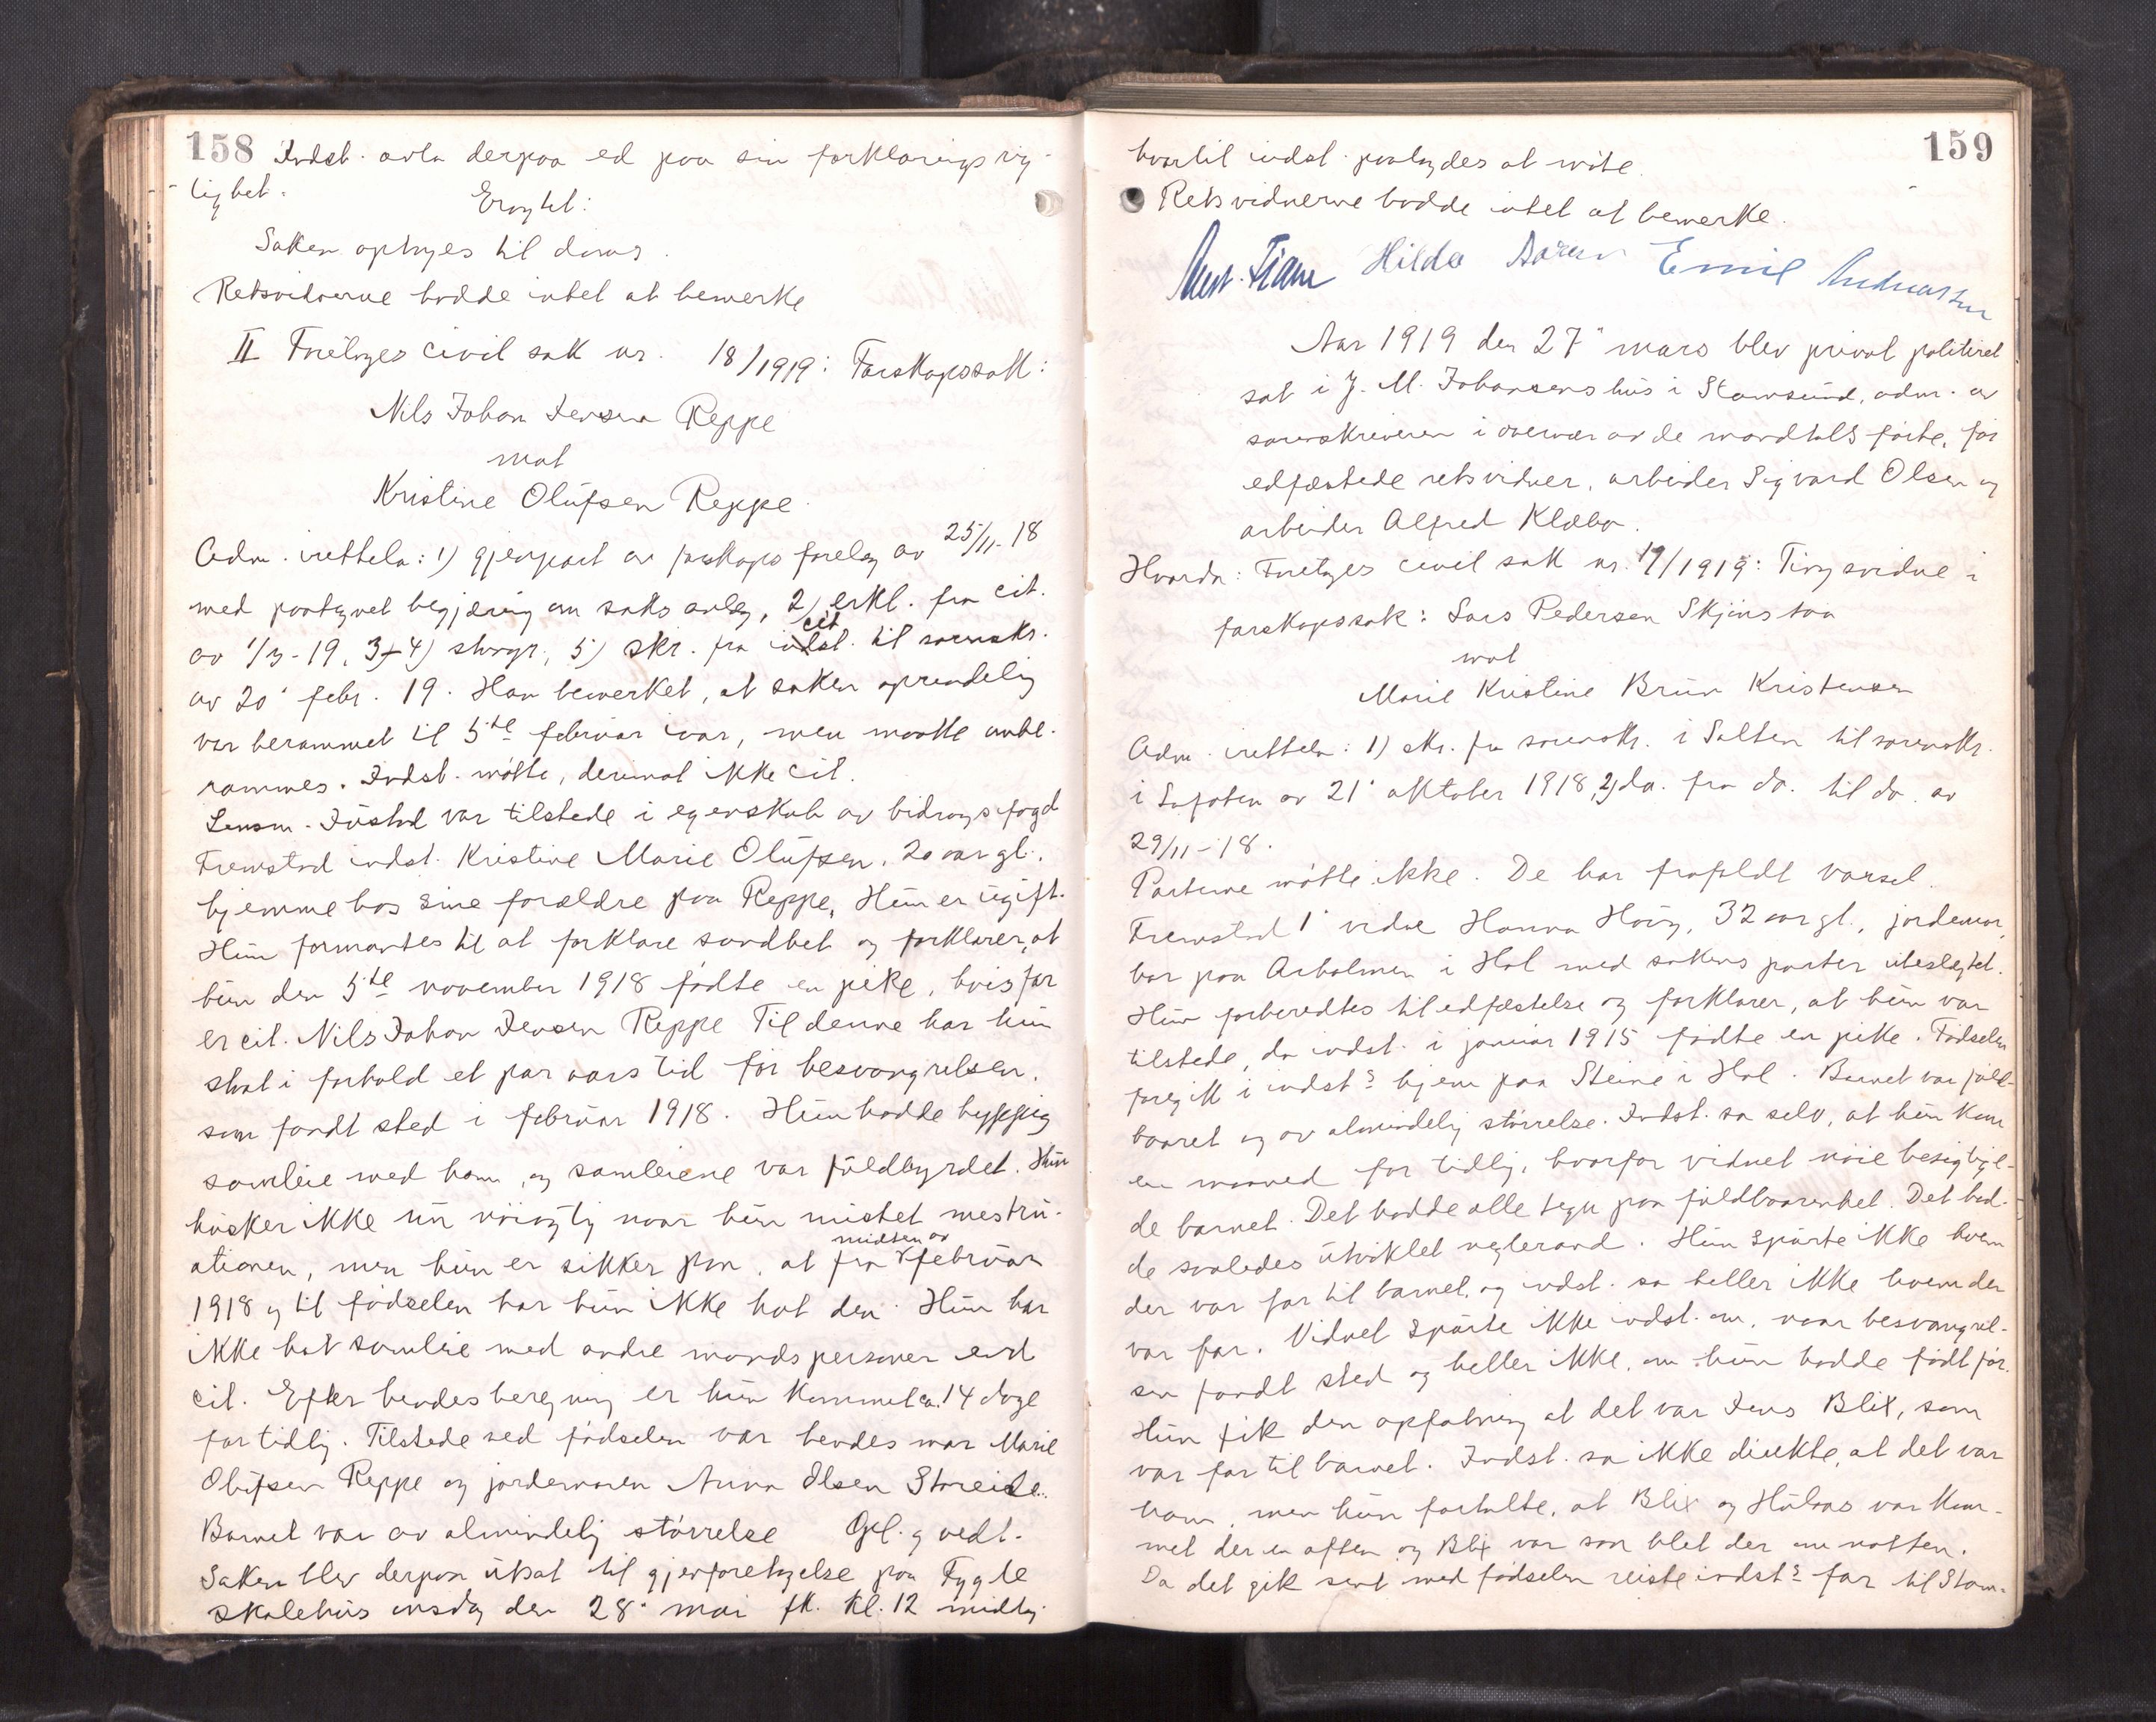 158 Indst. avla derpaa ed paa sin forklarings rig-
tighet.
Eragtet:
Saken optages til doms.
Retsvidnerne hadde intet at bemerke
II Foretages civil sak nr. 18/1919: Farskapssak:
Nils Johan Jensen Reppe
mot
Kristine Olufsen Reppe.
Adm. irettela: 1) gjenpart av farskaps forelæg av 25/11-18
med paategnet begjæring om saks anlæg, 2) erkl. fra cit.
av 1/3-19, 3+4) stevn., 5) skr. fra cit. til sorenskr.
av 20' febr. 19. Han bemerket, at saken oprindelig
var berammet til 5te februar iaar, men maatte ombe-
rammes. Indst. møtte, derimot ikke cit.
Lensm. Jüstad var tilstede i egenskab av bidragsfogd
Fremstod indst. Kristine Marie Olufsen, 20 aar gl.,
hjemme hos sine forældre paa Reppe, Hun er ugift.
Hun formantes til at forklare sandhet og forklarer, at
hun den 5te november 1918 fødte en pike, hvis far
er cit. Nils Johan Jensen Reppe Til denne har hun
staat i forhold et par aars tid før besvangrelsen,
som fandt sted i februar 1918. Hun hadde hyppig
samleie med ham, og samleiene var fuldbyrdet. Hun
husker ikke nu nøiagtig naar hun mistet mestru-
ationen, men hun er sikker paa, at fra midten av februar
1918 og til fødselen har hun ikke hat den. Hun har
ikke hat samleie med andre mandspersoner end
cit. Efter hendes beregning er hun kommet ca. 14 dage
for tidlig. Tilstede ved fødselen var hendes mor Marie
Olufsen Reppe og jordemoren Anna Olsen Storeide.
Barnet var av almindelig størrelse Opl. og vedt.
Saken blev derpaa utsat til gjenforetagelse paa Fygle
skolehus onsdag den 28' mai fk. kl. 12 middag
159
hvortil indst. paalagdes at møte.
Retsvidnerne hadde intet at bemerke.
Hilda Emil Andreassen
Aar 1919 den 27' mars blev privat politiret
sat i J. M. Johansens hus i Stamsund, adm. av
sorenskriveren i overvær av de mandtalsførte, før
edfæstede retsvidner, arbeider Sigvard Olsen og
arbeider Alfred Klæbo.
Hvorda: Foretages civil sak nr. 19/1919: Tingsvidne i
farskapssak: Lars Pedersen Skjinstaa
mot
Marie Kristine Brun Kristensen
Adm. irettela: 1) skr. fra sorenskr. i Salten til sorenskr.
i Lofoten av 21' oktober 1918, 2) do. fra do. til do. av
29/11-18.
Parterne møtte ikke. De har frafaldt varsel.
Fremstod 1' vidne Hanna Høiog, 32 aar gl., jordemor,
bor paa Arholmen i Hol med sakens parter ubeslægtet.
Hun forberedtes til edfæstelse og forklarer, at hun var
tilstede, da indst. i januar 1915 fødte en pike. Fødselen
foregik i indst.s hjem paa Steine i Hol. Barnet var fuld-
baaret og av almindelig størrelse. Indst. sa selv, at hun kom
en maaned for tidlig, hvorfor vidnet nøie besigtiget-
de barnet. Det hadde alle tegn paa fuldbaarenhet. Det had-
de saaledes utviklet neglerand. Hun spurte ikke hvem
der var far til barnet, og indst. sa heller ikke hvem der
var far. Vidnet spurte ikke indst. om, naar besvangrel-
sen fandt sted og heller ikke, om hun hadde født før.
Hun fik den opfatning at det var Jens Blix, som
var far til barnet. Indst. sa ikke direkte, at det var
ham, men hun fortalte, at Blix og Hulaas var kom-
met der en aften og Blix var saa blet der om natten.
Da det gik sent med fødselen reiste indst.s far til Stam-